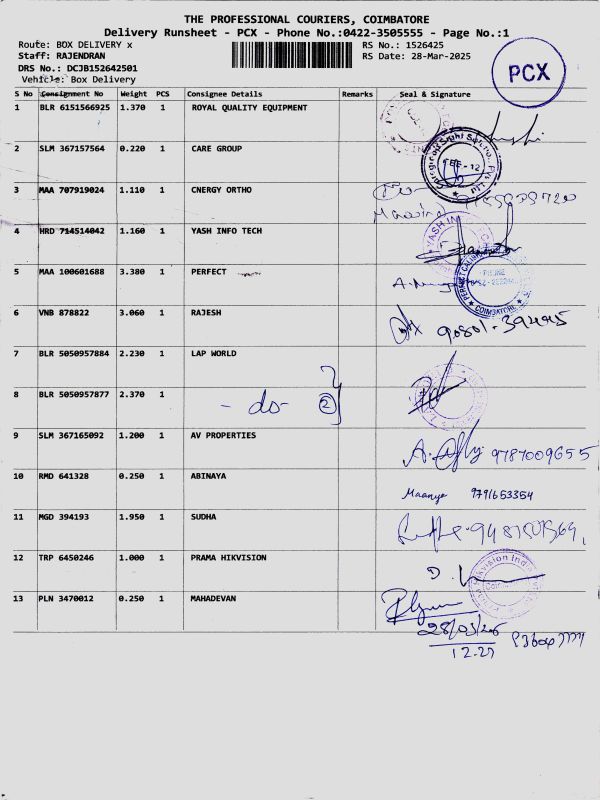 THE PROFESSIONAL COURIERS, COIMBATORE
Delivery Runsheet - PCX - Phone No.:0422-3505555 - Page No.:1
Route: BOX DELIVERY x
RS No.: 1526425
Staff: RAJENDRAN
RS Date: 28-Mar-2025
DRS No.: DCJB152642501
Vehicle: Box Delivery
PCX
S No Consignment No Weight PCS Consignee Details Remarks Seal & Signature
1 BLR 6151566925 1.370 1 ROYAL QUALITY EQUIPMENT
2 SLM 367157564 0.220 1 CARE GROUP
3 MAA 707919024 1.110 1 CNERGY ORTHO
4 HRD 714514042 1.160 1 YASH INFO TECH
5 MAA 100601688 3.380 1 PERFECT
COIMBATORE
6 VNB 878822 3.060 1 RAJESH
7 BLR 5050957884 2.230 1 LAP WORLD
8 BLR 5050957877 2.370 1 - do - 2
9 SLM 367165092 1.200 1 AV PROPERTIES
9787009655
10 RMD 641328 0.250 1 ABINAYA
Maanya 9791653354
11 MGD 394193 1.950 1 SUDHA
12 TRP 6450246 1.000 1 PRAMA HIKVISION
13 PLN 3470012 0.250 1 MAHADEVAN
12.27